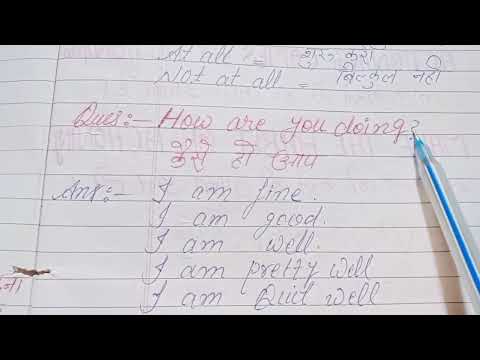 At all = शुरू करो
Not at all = बिल्कुल नहीं
Ques:- How are you doing?
कैसे हो आप
Ans:- I am fine.
I am good.
I am well.
I am pretty well
I am Quit well